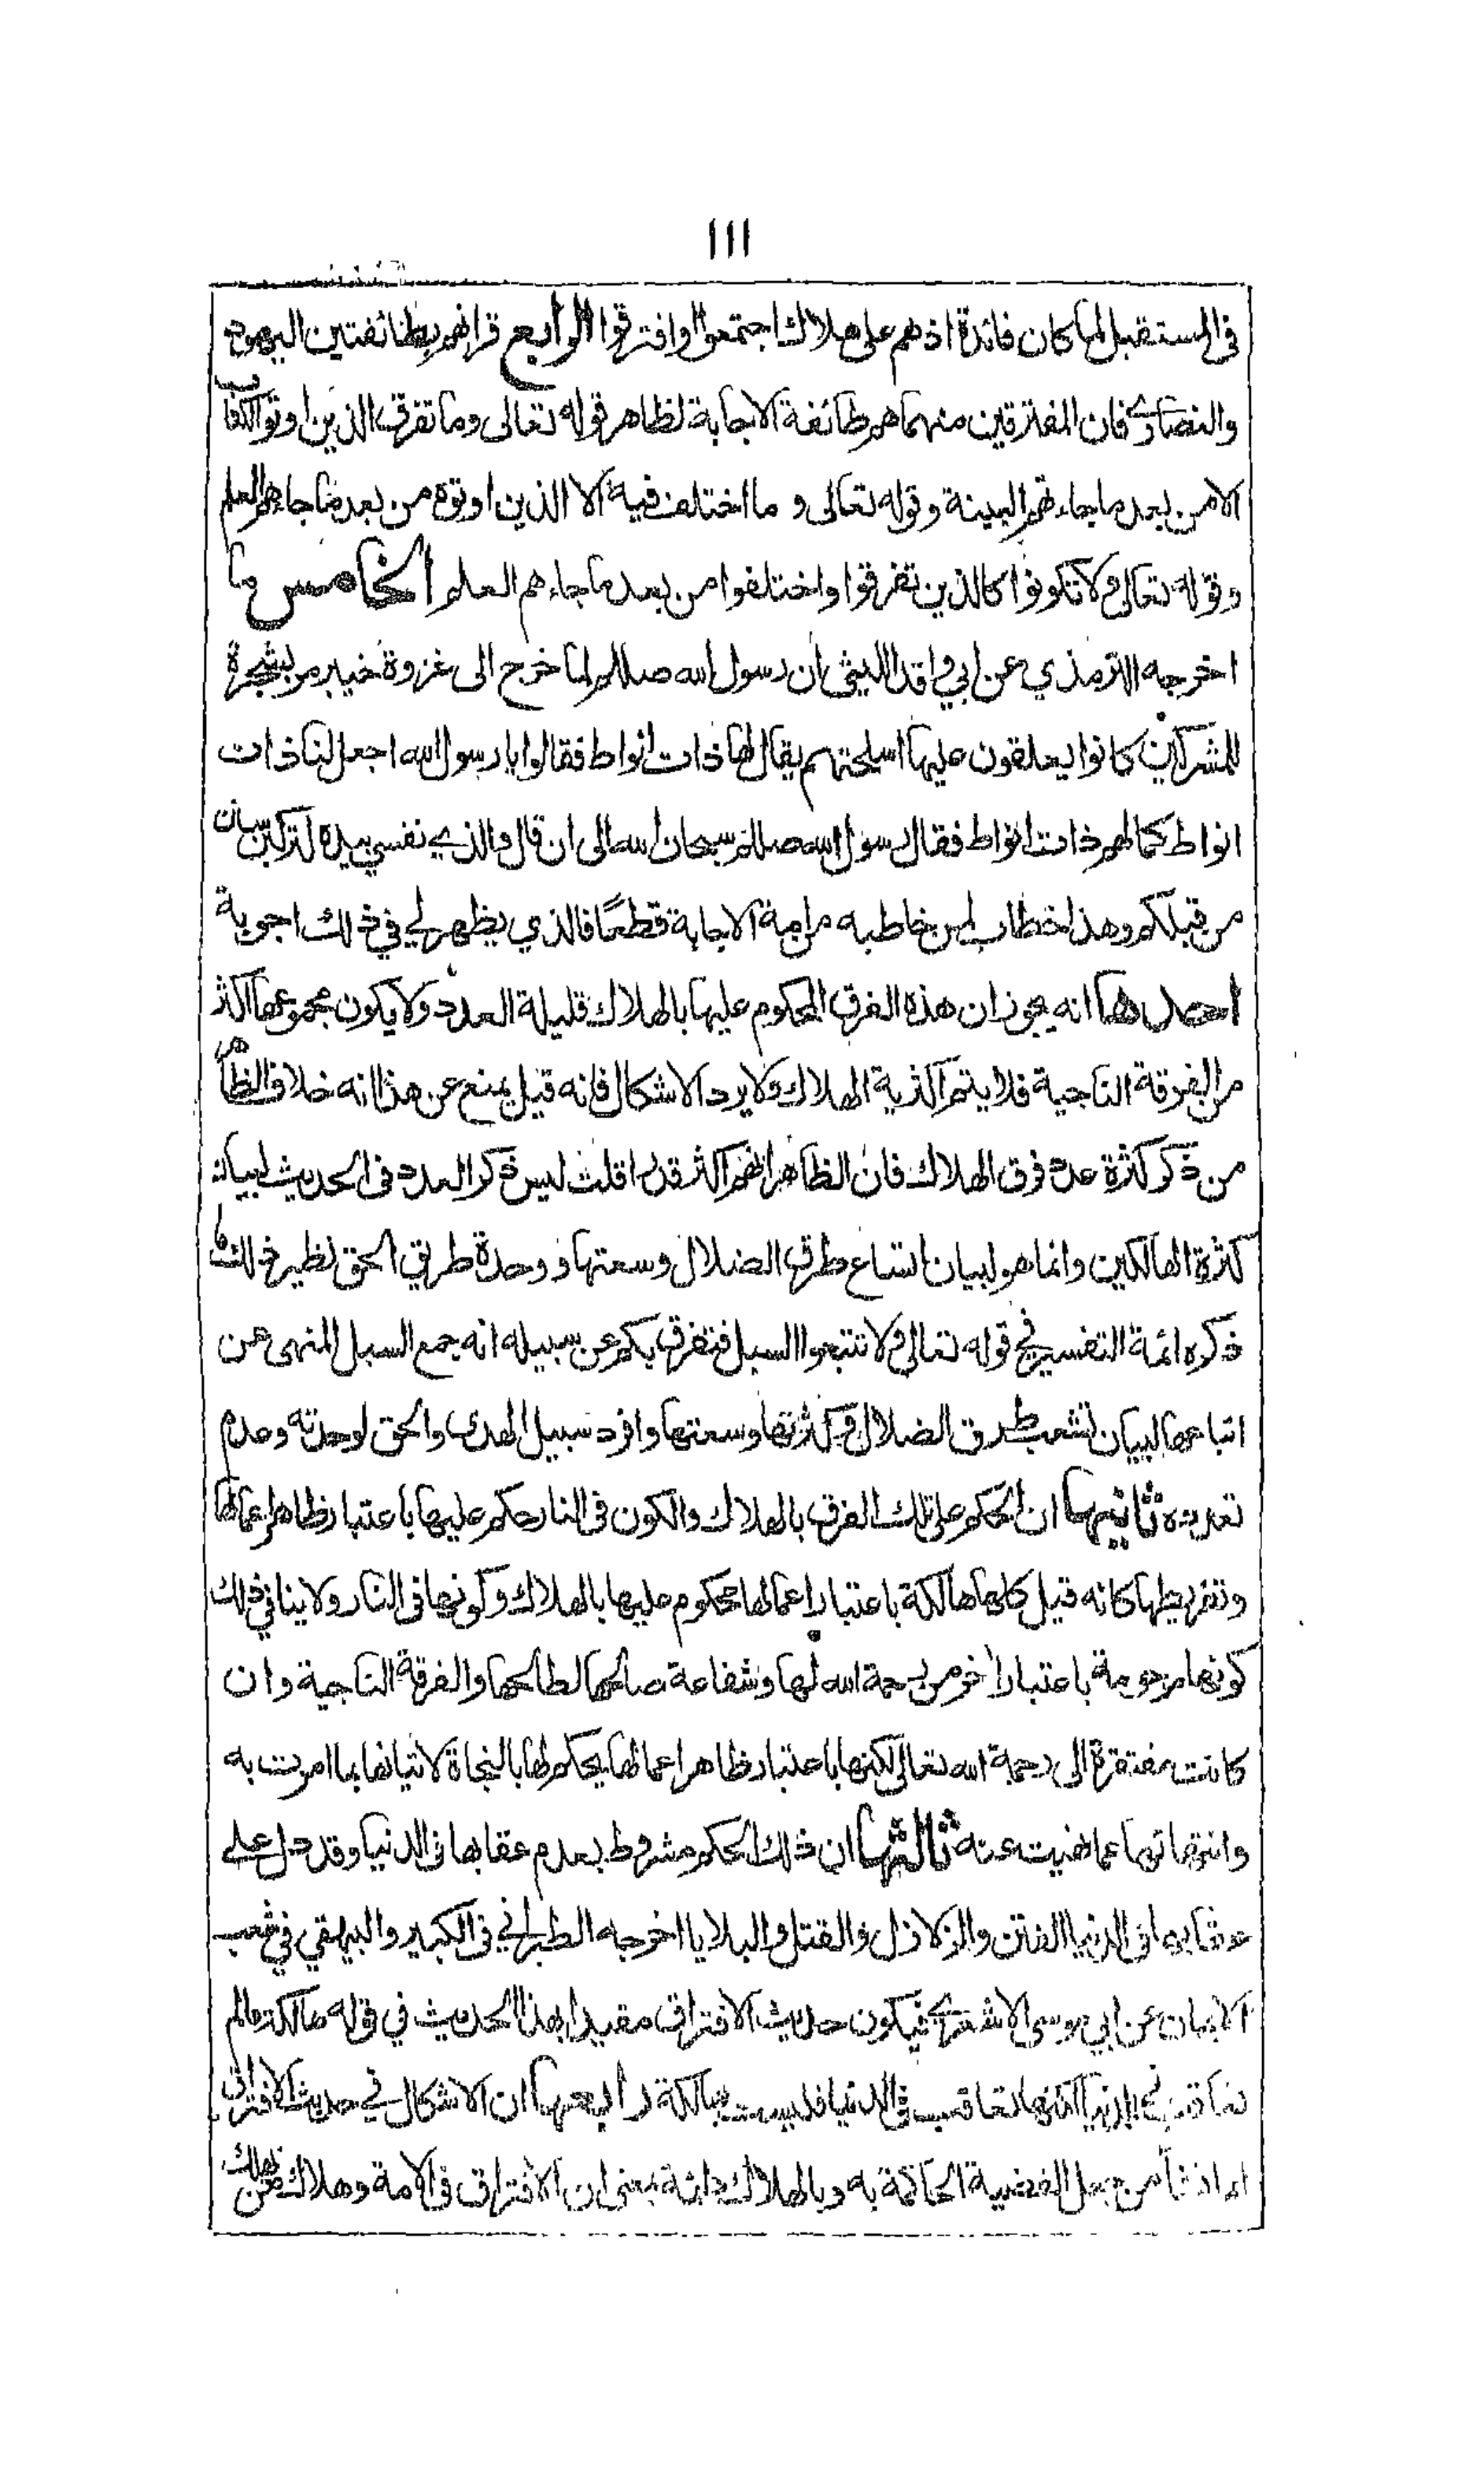 ١١١
في المستقبل لما كان فائدة اذ هم على هلاك اجتمعوا او افترقوا الرابع قرانهم بطائفتين اليهود
والنصارى فان المفترقين منهما هم طائفة الاجابة لظاهر قوله تعالى وما تفرق الذين اوتوا الكتاب
الا من بعد ما جاءتهم البينة وقوله تعالى و ما اختلف فيه الا الذين اوتوه من بعد ما جاءهم العلم
وقوله تعالى ولا تكونوا كالذين تفرقوا واختلفوا من بعد ما جاءهم العلم الخامس ما
اخرجه الترمذي عن ابي واقد الليثي ان رسول الله صللم لما خرج الى غزوة خيبر مر بشجرة
للمشركين كانوا يعلقون عليها اسلحتهم يقال لها ذات انواط فقالوا يا رسول الله اجعل لنا ذات
انواط كما لهم ذات انواط فقال رسول الله صللم سبحان الله الى ان قال والذي نفسي بيده لتركبن سنن
من قبلكم وهذا خطاب لمن خاطبه من امة الاجابة قطعًا فالذي يظهر لي في ذلك اجوبة
احدها انه يجوز ان هذه الفرق المحكوم عليها بالهلاك قليلة العدد ولا يكون مجموعها اكثر
من الفرقة الناجية فلا يتم اكثرية الهلاك ولا يرد الاشكال فانه قيل يمنع عن هذا انه خلاف الظاهر
من ذكر كثرة عدد فرق الهلاك فان الظاهر انهم اكثر قدرا قلت ليس ذكر العدد في الحديث لبيان
كثرة الهالكين وانما هو لبيان اتساع طرق الضلال وسعتها و وحدة طريق الحق نظير ذلك ما
ذكره ائمة التفسير في قوله تعالى ولا تتبعوا السبل فتفرق بكم عن سبيله انه جمع السبل المنهى عن
اتباعها لبيان تشعب طرق الضلال وكثرتها وسعتها وافرد سبيل الهدى والحق لوحدته وعدم
تعدده ثانيها ان الحكم على تلك الفرق بالهلاك والكون في النار حكم عليها باعتبار ظاهر اعمالها
وتفريطها كانه قيل كلها هالكة باعتبار اعمالها محكوم عليها بالهلاك وكونها في النار ولا ينافي ذلك
كونها مرحومة باعتبار اخر من رحمة الله لها وشفاعة صالحها لطالحها والفرقة الناجية وان
كانت مفتقرة الى رحمة الله تعالى لكنها باعتبار ظاهر اعمالها يحكم لها بالنجاة لاتيانها بما امرت به
وانتهائها عما نهيت عنه ثالثها ان ذلك الحكم مشروط بعدم عقابها في الدنيا وقد دل على
عقابها في الدنيا الفتن والزلازل والقتل والبلايا اخرجه الطبراني في الكبير والبيهقي في شعب
الايمان عن ابي موسى الاشعري فيكون حديث الافتراق مقيدا بهذا الحديث في قوله هالكة ما لم
تعاقب في الدنيا لكنها تعاقب في الدنيا فليست بهالكة رابعها ان الاشكال في حديث الافتراق
انما نشأ من جعل القضية الحاكمة به وبالهلاك دائمة بمعنى ان الافتراق في الامة وهلاك من يهلك